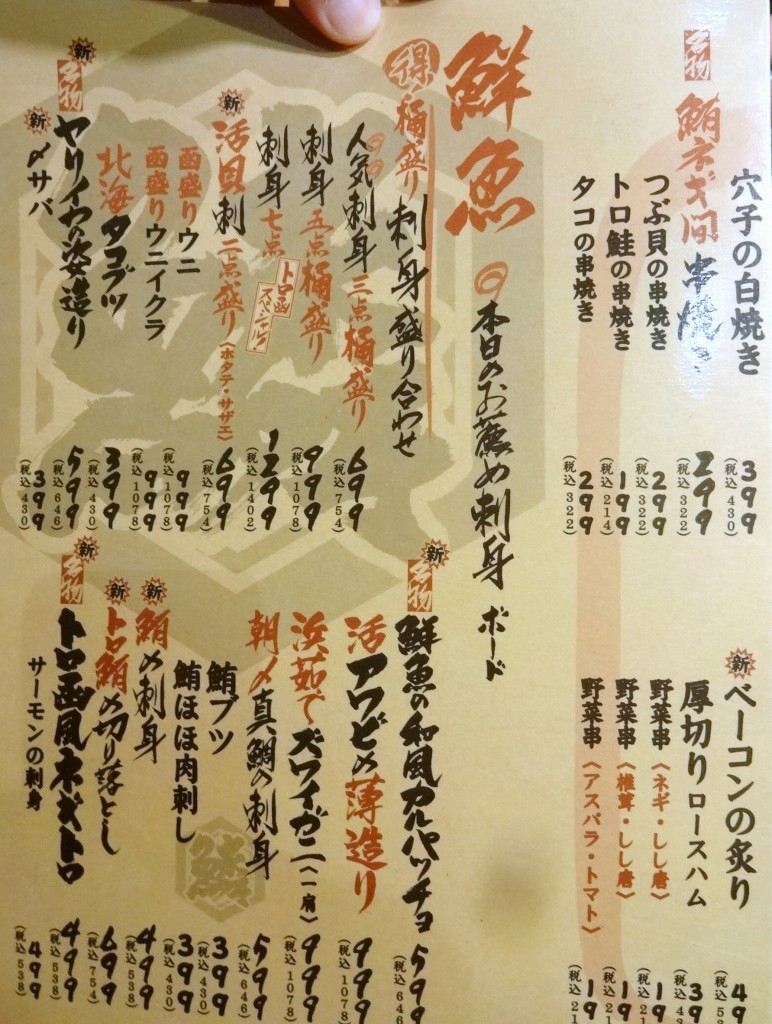 穴子の白焼き 399 (税込430)
名物 鮪ネギ間串焼き 299 (税込322)
つぶ貝の串焼き 299 (税込322)
トロ鮭の串焼き 199 (税込214)
タコの串焼き 299 (税込322)
新 ベーコンの炙り 49
厚切りロースハム 39
野菜串〈ネギ・しし唐〉 19
野菜串〈椎茸・しし唐〉 199
野菜串〈アスパラ・トマト〉 199
鮮魚
本日のお薦め刺身 ボード
得 桶盛り 刺身盛り合わせ
人気刺身三点桶盛り 699 (税込754)
刺身五点桶盛り 999 (税込1078)
刺身七点 トロ函スペシャル! 1299 (税込1402)
新 活貝刺二点盛り〈ホタテ・サザエ〉 699 (税込754)
函盛りウニ 999 (税込1078)
函盛りウニイクラ 999 (税込1078)
北海タコブツ 399 (税込430)
新 名物 ヤリイカの姿造り 599 (税込646)
新 〆サバ 399 (税込430)
新 名物 鮮魚の和風カルパッチョ 599 (税込646)
活アワビの薄造り 999 (税込1078)
浜茹でズワイガニ〈一肩〉 999 (税込1078)
朝〆真鯛の刺身 599 (税込646)
鮪ブツ 399 (税込430)
鮪ほほ肉刺し 399 (税込430)
新 鮪の刺身 499 (税込538)
新 トロ鮪の切り落とし 699 (税込754)
新 名物 トロ函風ネギトロ 499 (税込538)
サーモンの刺身 499 (税込538)